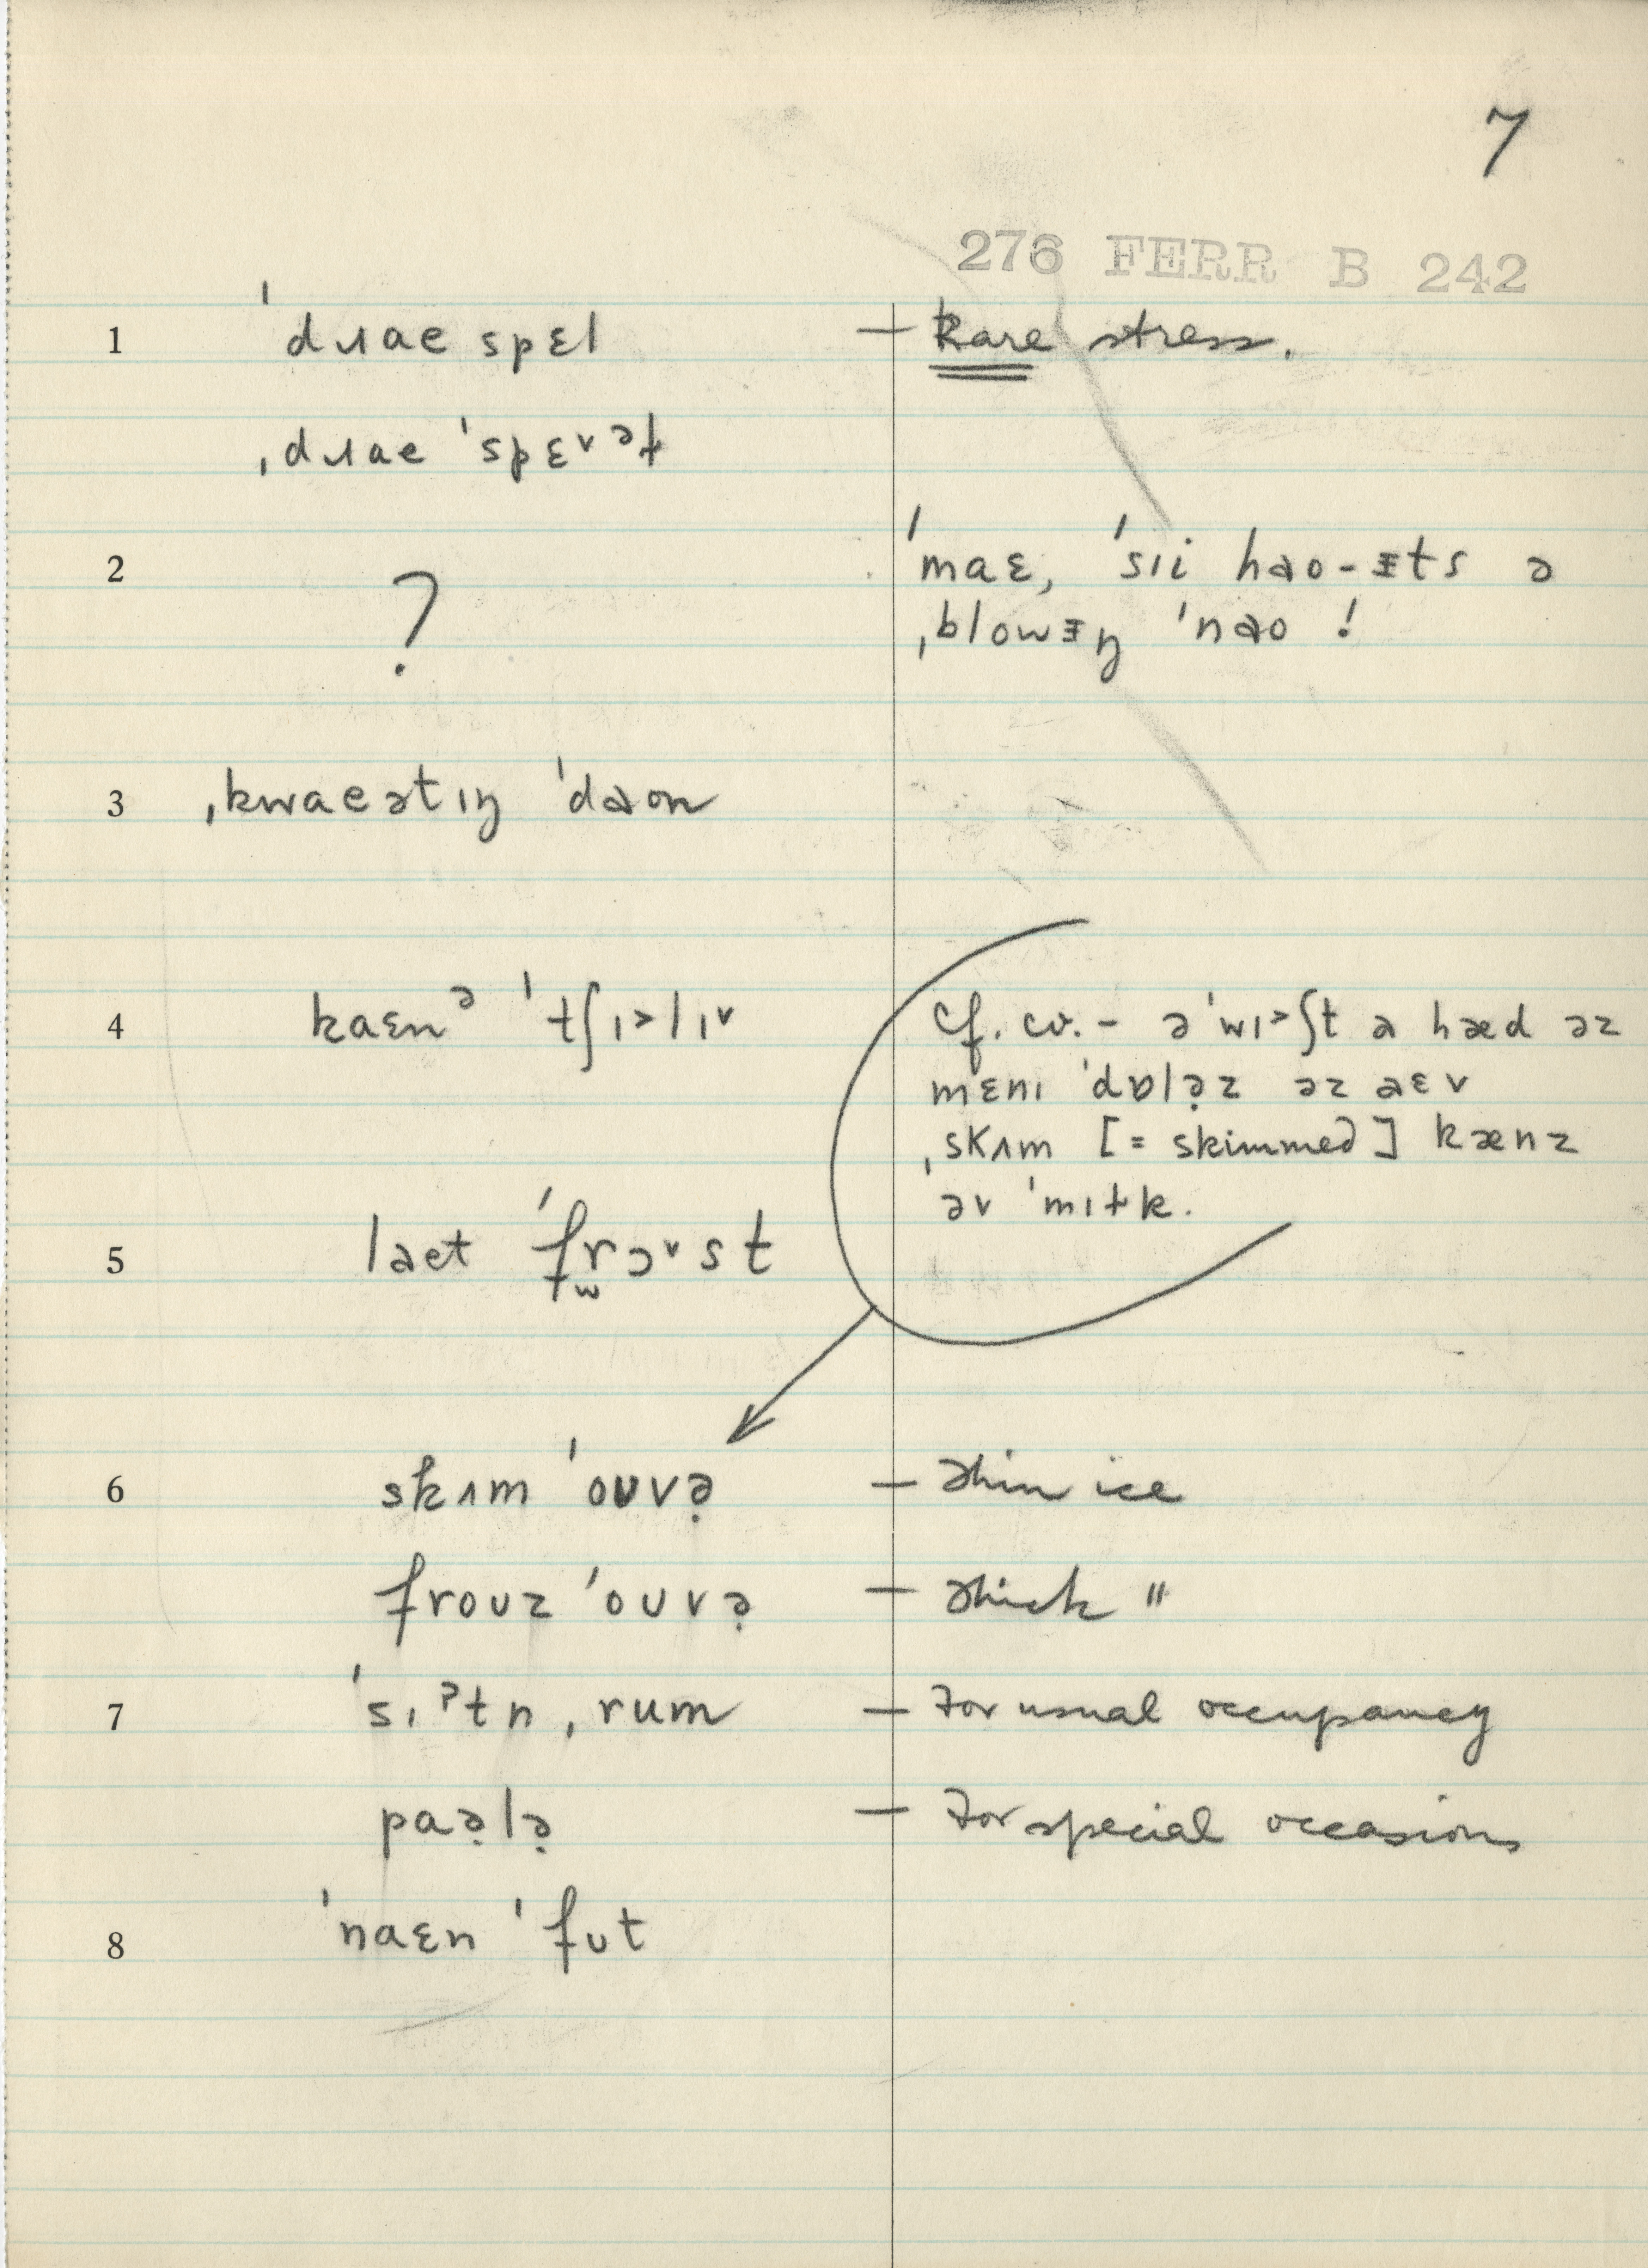 7
276 FERR B 242
1 ˈdɹae spɛl — Rare stress.
ˌdɹae ˈspɛ˅ᵊɫ
2 ? ˈmaɛ, ˈsıi hɑo-ᵻts ə
ˌblowᵻŋ ˈnɑo !
3 ˌkwaeətıŋ ˈdɑon
4 kaɛnᵊ ˈtʃı˃lı˅ Cf. cv. - əˈwı˃ʃt a hæd əz
mɛnı ˈdɒlə̣z əz aɛv
ˌskʌm [= skimmed] kænz
əv ˈmıɫk.
5 laet ˈfr̫ɔ˅st
6 skʌm ˈoʊvə̣ — thin ice
froʊz ˈoʊvə̣ — thick "
7 ˈsıˀtn ˌrum — For usual occupancy
paə̣lə̣ — For special occasions
8 ˈnaɛn ˈfʊt